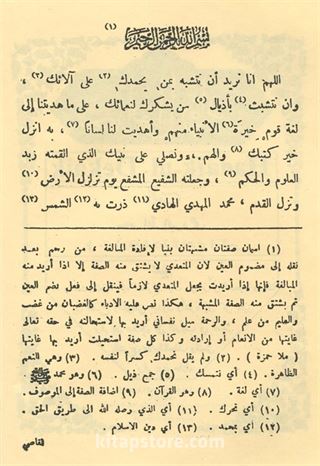 (١)
بسم الله الرحمن الرحيم
اللهم انا نريد أن نتشبه بمن يحمدك (٢) على آلائك (٣) ،
وان نتشبت (٤) بأذيال (٥) من يشكرك لنعمائك ، على ما هديتنا إلى
لغة قوم خيرة (٦) الأنبياء منهم وأهديت لنا لسانا (٧) ، به انزل
خير كتبك (٨) والهم. ونصلي على نبيك الذي القمته زبد
العلوم والحكم (٩) ، وجعلته الشفيع المشفع يوم تزلزل الأرض (١٠)
وتزل القدم ، محمد المهدي الهادي (١١) ذرت به (١٢) الشمس (١٣)
(١) اسمان صفتان مشبهتان بنيا لإفادة المبالغة ، من رحم بعد
نقله إلى مضموم العين لان المتعدي لا يشتق منه الصفة إلا اذا أريد منه
المبالغة فإنها إذا أريدت يجعل المتعدي لازماً فينقل إلى فعل بضم العين
ثم يشتق منه الصفة المشبهة ، هكذا نص عليه الادباء كالغضبان من غضب
والعليم من علم ، والرحمة ميل نفساني أريد بها لاستحالته في حقه تعالى
غايتها من الانعام أو إرادته وكذا كل صفة استحيلت أريد بها غايتها
( ملا حمزة ) . (٢) ولم يقل نحمدك كسراً لنفسه . (٣) وهي النعم
الظاهرة . (٤) أي نتمسك . (٥) جمع ذيل . (٦) وهو محمد ﷺ
(٧) أي لغة . (٨) وهو القرآن . (٩) اضافة الصفة إلى الموصوف .
(١٠) أي تحرك . (١١) أي الذي رصله الله الى طريق الحق .
(١٢) أي بمحمد . (١٣) أي دين الاسلام .
لقاصي
kitapstore.com